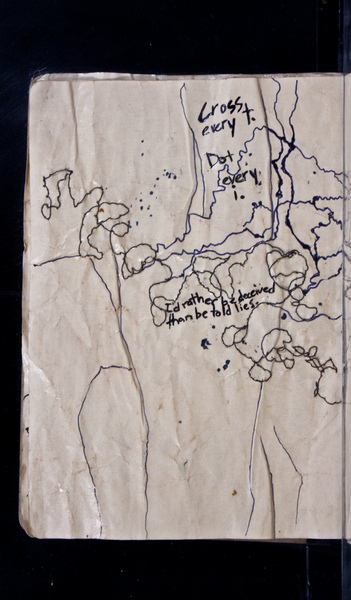 Cross
every t.
Dot
every
i.
I'd rather be deceived
than be told lies.